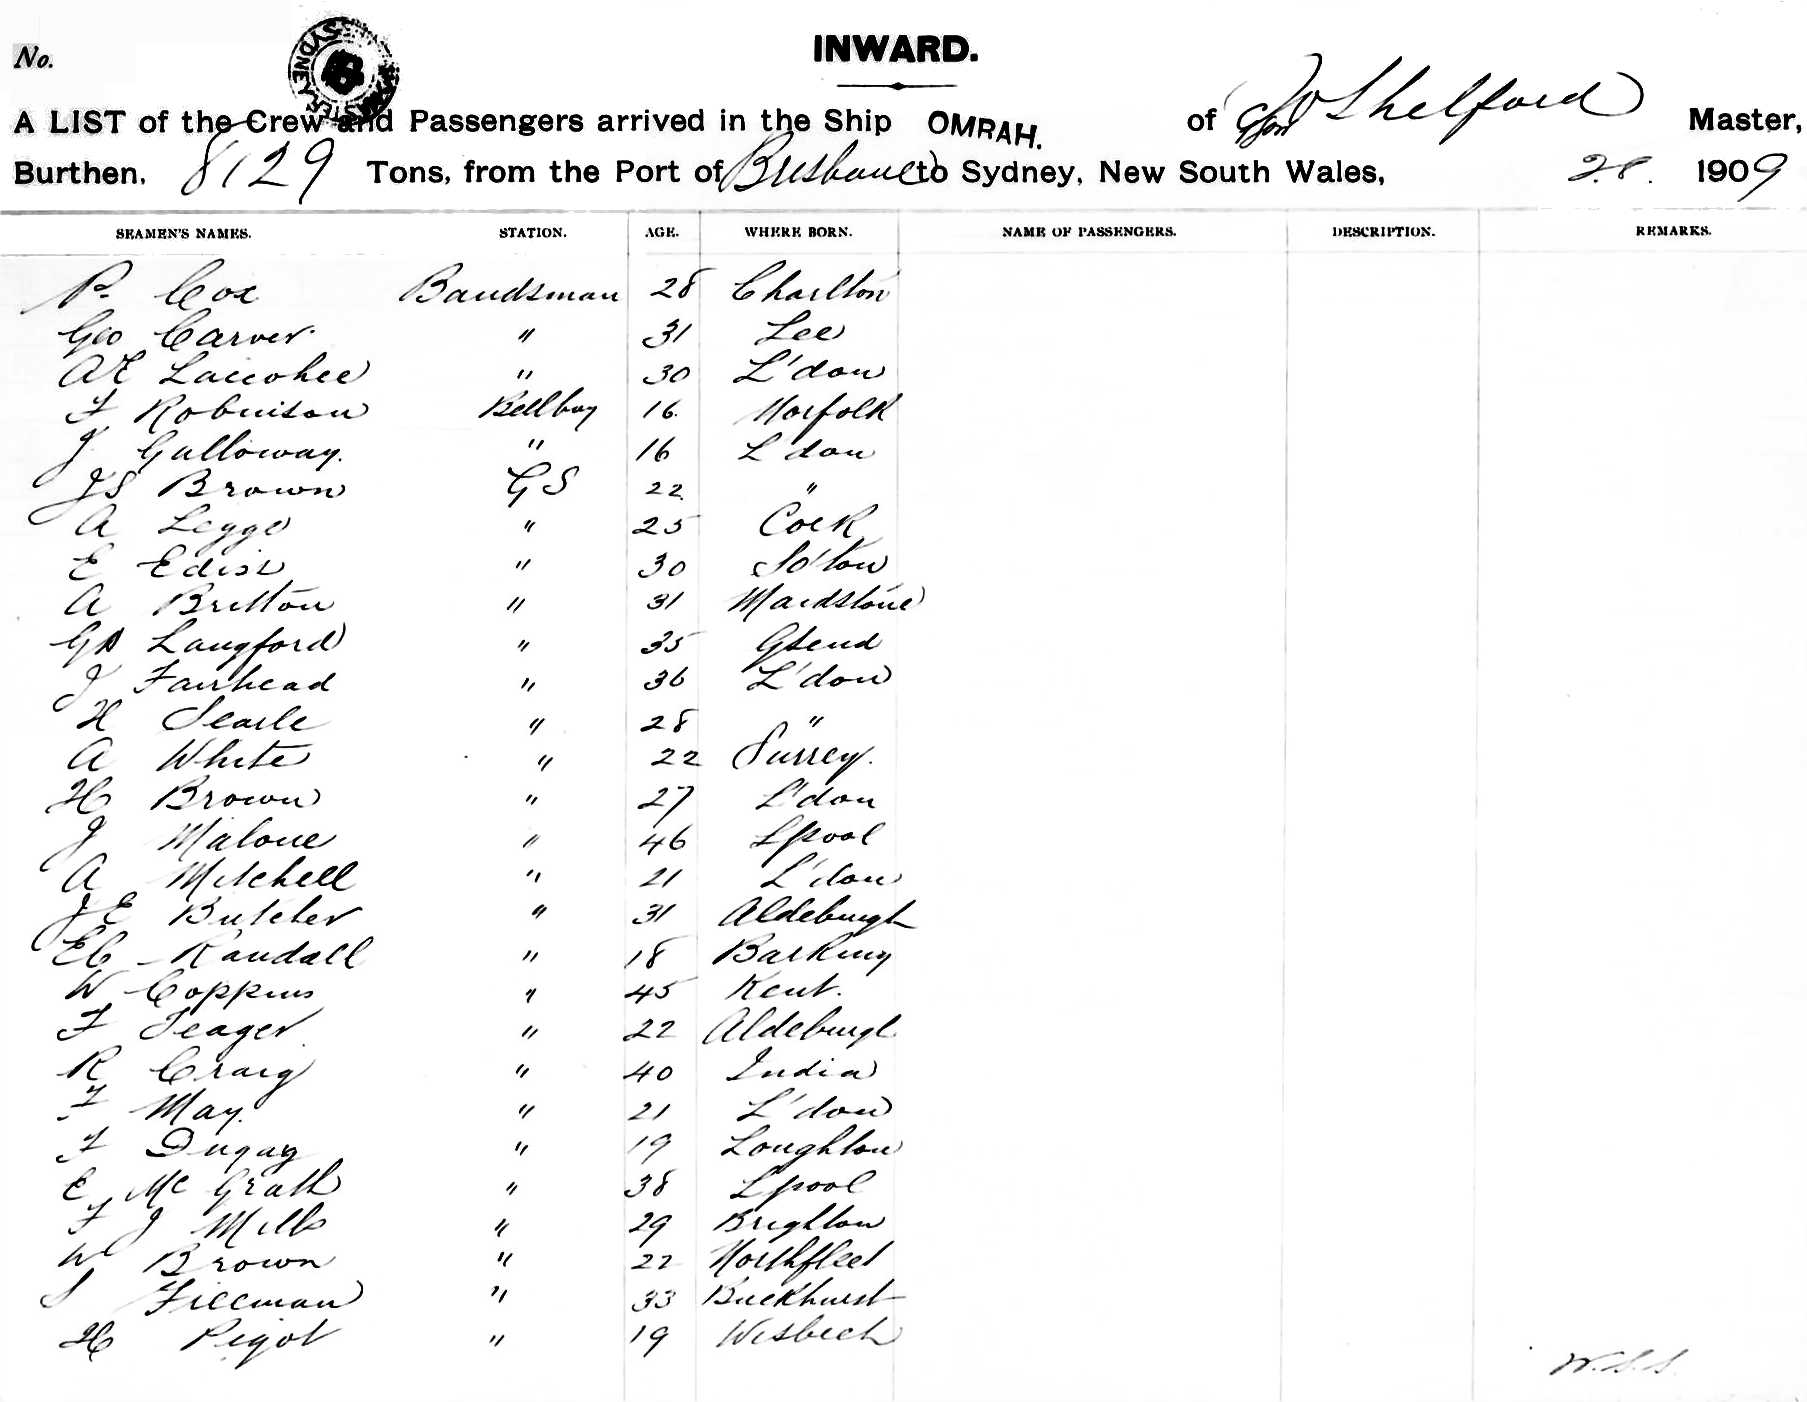 No.
INWARD.
A LIST of the Crew and Passengers arrived in the Ship OMRAH. of Shelford Master,
Burthen, 8129 Tons, from the Port of Brisbane to Sydney, New South Wales, 28. 1909
SEAMEN'S NAMES. STATION. AGE. WHERE BORN. NAME OF PASSENGERS. DESCRIPTION. REMARKS.
P. Cox Bandsman 28 Charlton
Geo Carver " 31 Lee
AE " 30 L'don
F Robinson Bellboy 16. Norfolk
J Galloway. " 16 L'don
JS Brown GS 22 "
A Legge " 25 Cork
E " 30 So'ton
A Britton " 31 Maidstone
GA Langford " 35 Gsend
J Fairhead " 36 L'don
H Searle " 28 "
A White " 22 Surrey.
H Brown " 27 L'don
J Malone " 46 Lpool
A Mitchell " 21 L'don
JE Butcher " 31 Aldeburgh
EC Randall " 18 Barking
W Coppins " 45 Kent.
F Seager " 22 Aldeburgh
R Craig " 40 India
F May. " 21 L'don
F Duguy " 19 Loughton
E McGrath " 38 Lpool
F J Mills " 29 Brighton
W Brown " 22 Northfleet
S " 33 Buckhurst
H Pigot " 19 Wisbech
W.S.S.